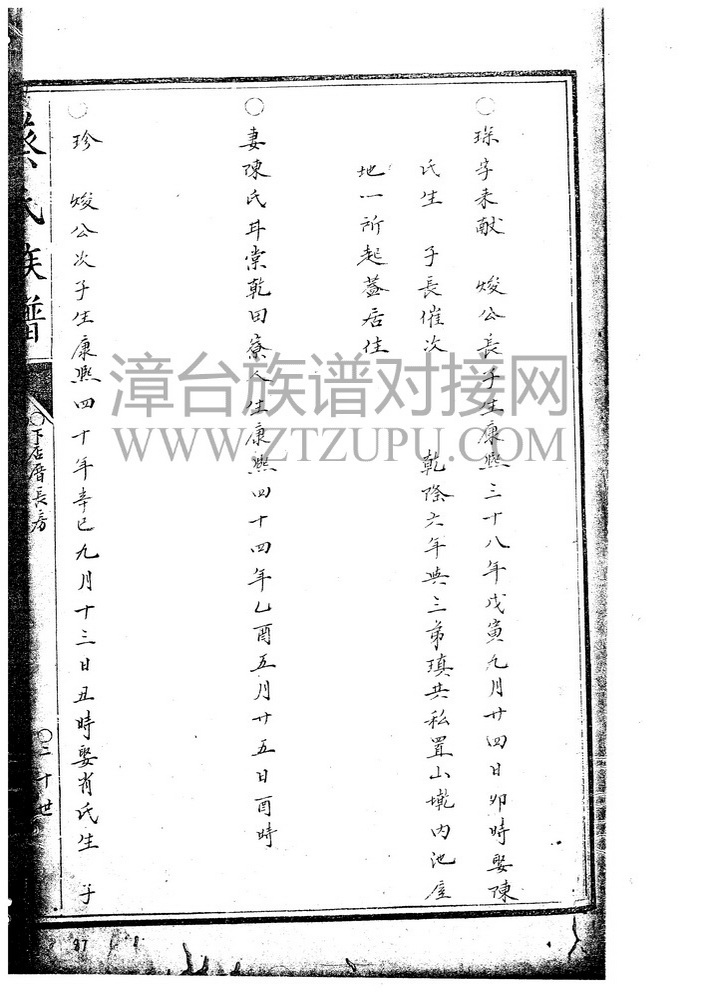 ○ 琛字来献 焌公長子生康熙三十八年戊寅九月廿四日卯時娶陳
氏生 子長催次 乾隆六年與三弟瑱共私置山墩内池屋
地一所起蓋居住
○ 妻陳氏耳棠乾田寮人生康熙四十四年乙酉五月廿五日酉時
○ 珍 焌公次子生康熙四十年辛巳九月十三日丑時娶肖氏生 子
蔡氏族譜
○下店厝長房
○二十世
97
漳台族谱对接网
WWW.ZTZUPU.COM